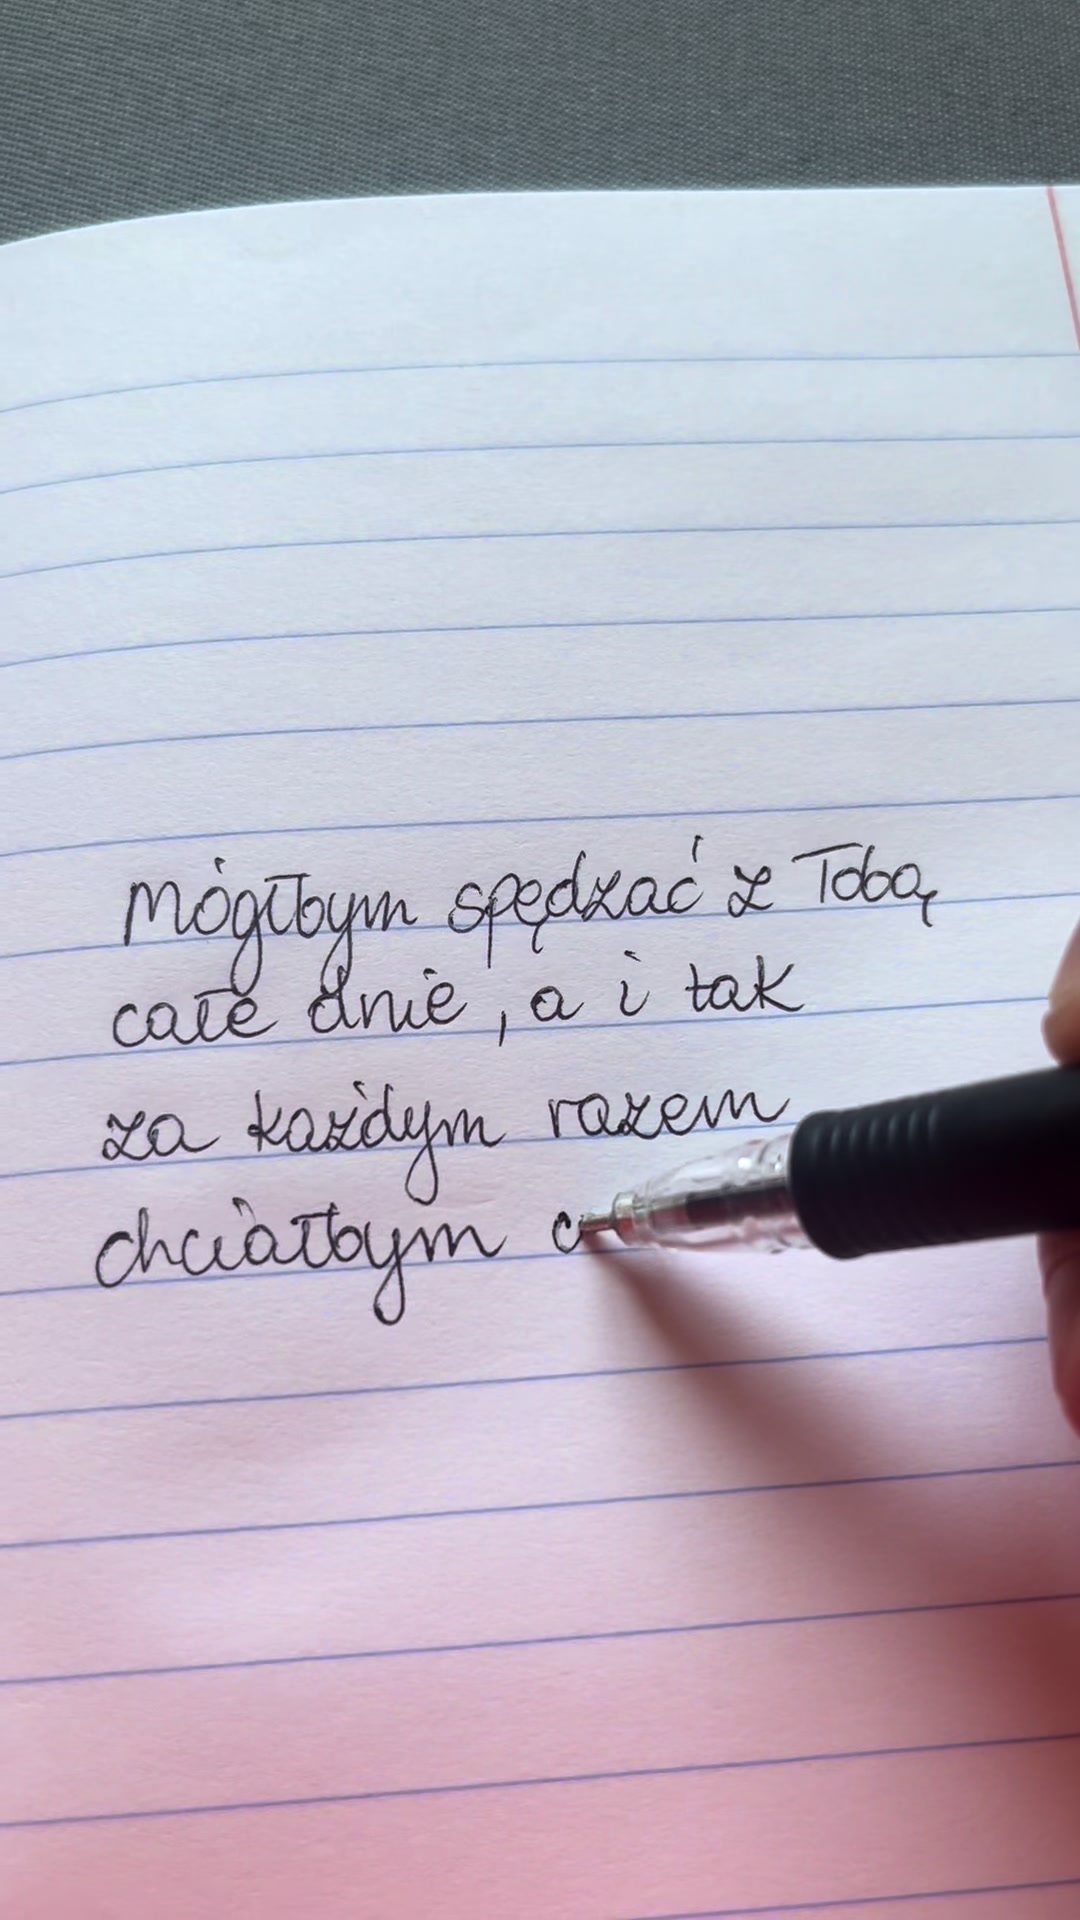 Mógłbym spędzać z Tobą
całe dnie, a i tak
za każdym razem
chciałbym c